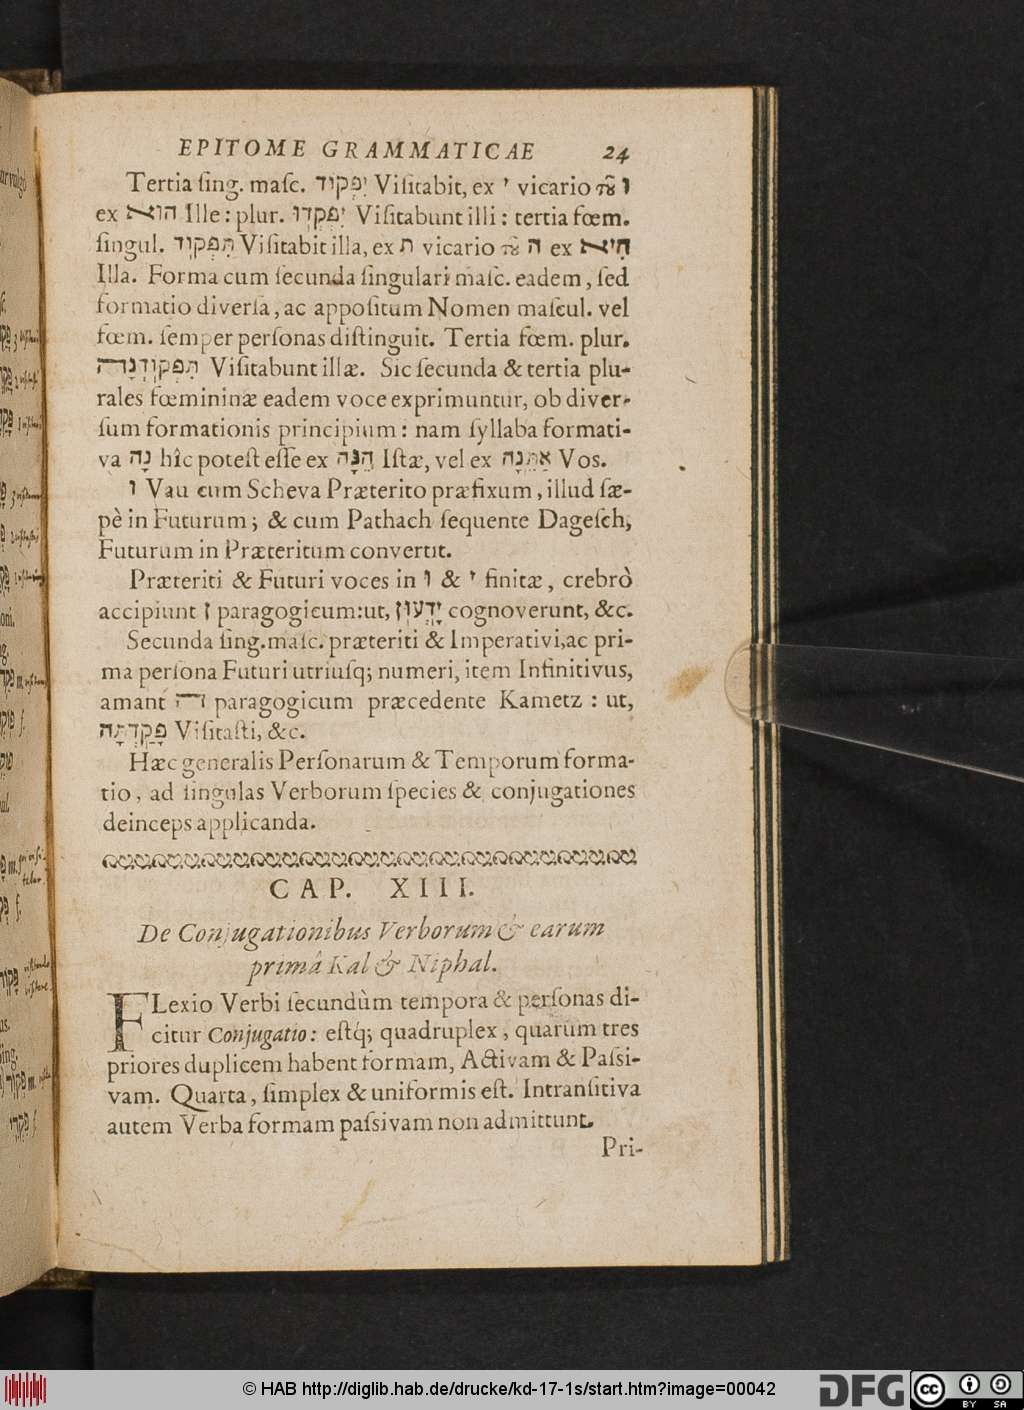 EPITOME GRAMMATICAE 24
Tertia ſing. maſc. יִפְקוֹד Viſitabit, ex י vicario τȣ͂ ו
ex הוּא Ille: plur. יִפְקְדוּ Viſitabunt illi: tertia fœm.
ſingul. תִּפְקוֹד Viſitabit illa, ex ת vicario τȣ͂ ה ex הִיא
Illa. Forma cum ſecunda ſingulari maſc. eadem, ſed
formatio diverſa, ac appoſitum Nomen maſcul. vel
fœm. ſemper perſonas diſtinguit. Tertia fœm. plur.
תִּפְקוֹדְנָה Viſitabunt illæ. Sic ſecunda & tertia plu-
rales fœmininæ eadem voce exprimuntur, ob diver-
ſum formationis principium: nam ſyllaba formati-
va נָה hîc poteſt eſſe ex הֵנָּה Iſtæ, vel ex אַתֵּנָה Vos.
ו Vau cum Scheva Præterito præfixum, illud ſæ-
pè in Futurum; & cum Pathach ſequente Dageſch,
Futurum in Præteritum convertit.
Præteriti & Futuri voces in ו & י finitæ, crebrò
accipiunt ן paragogicum: ut, יָדְעוּן cognoverunt, &c.
Secunda ſing. maſc. præteriti & Imperativi, ac pri-
ma perſona Futuri utriuſq; numeri, item Infinitivus,
amant ה paragogicum præcedente Kametz: ut,
פָּקַדְתָּה Viſitaſti, &c.
Hæc generalis Perſonarum & Temporum forma-
tio, ad ſingulas Verborum ſpecies & conjugationes
deinceps applicanda.
CAP. XIII.
De Conjugationibus Verborum & earum
primâ Kal & Niphal.
FLexio Verbi ſecundùm tempora & perſonas di-
citur Conjugatio: eſtq́; quadruplex, quarum tres
priores duplicem habent formam, Activam & Paſsi-
vam. Quarta, ſimplex & uniformis eſt. Intranſitiva
autem Verba formam paſsivam non admittunt.
Pri-
© HAB http://diglib.hab.de/drucke/kd-17-1s/start.htm?image=00042
DFG
cc BY SA